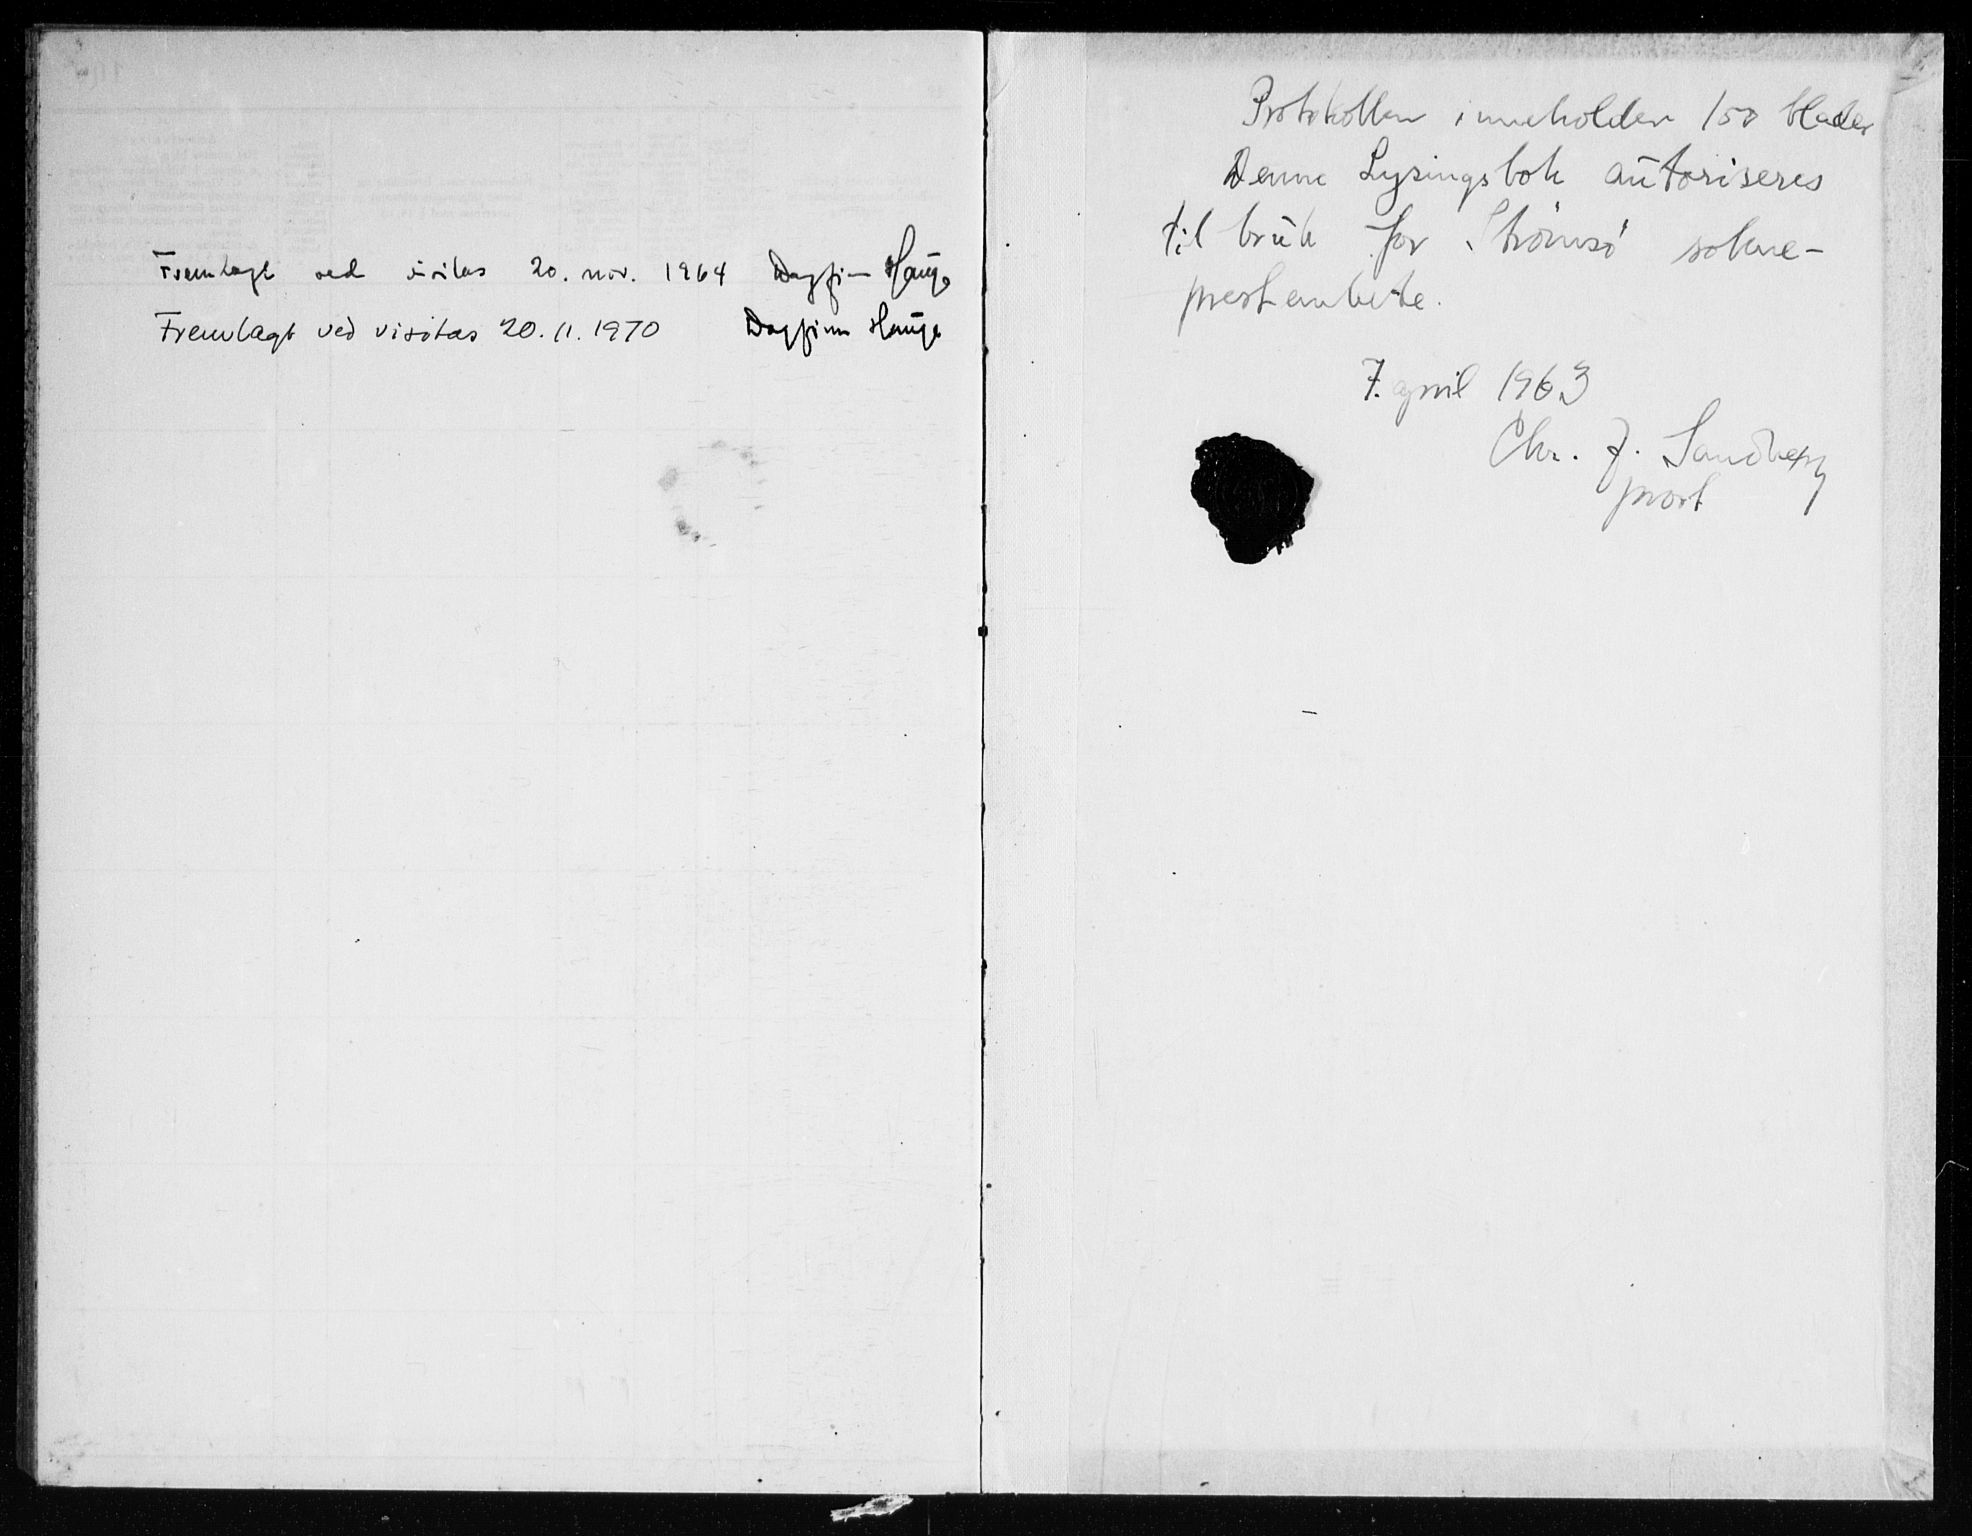 Fremlagt ved visitas 20. nov. 1964 Dagfinn Hauge
Fremlagt ved visitas 20.11.1970 Dagfinn Hauge
Protokollen inneholder 150 blader
Denne Lysingsbok autoriseres
til bruk for Strömsö sokne-
prestembete.
7. april 1963
Chr. J. Sandberg
prost